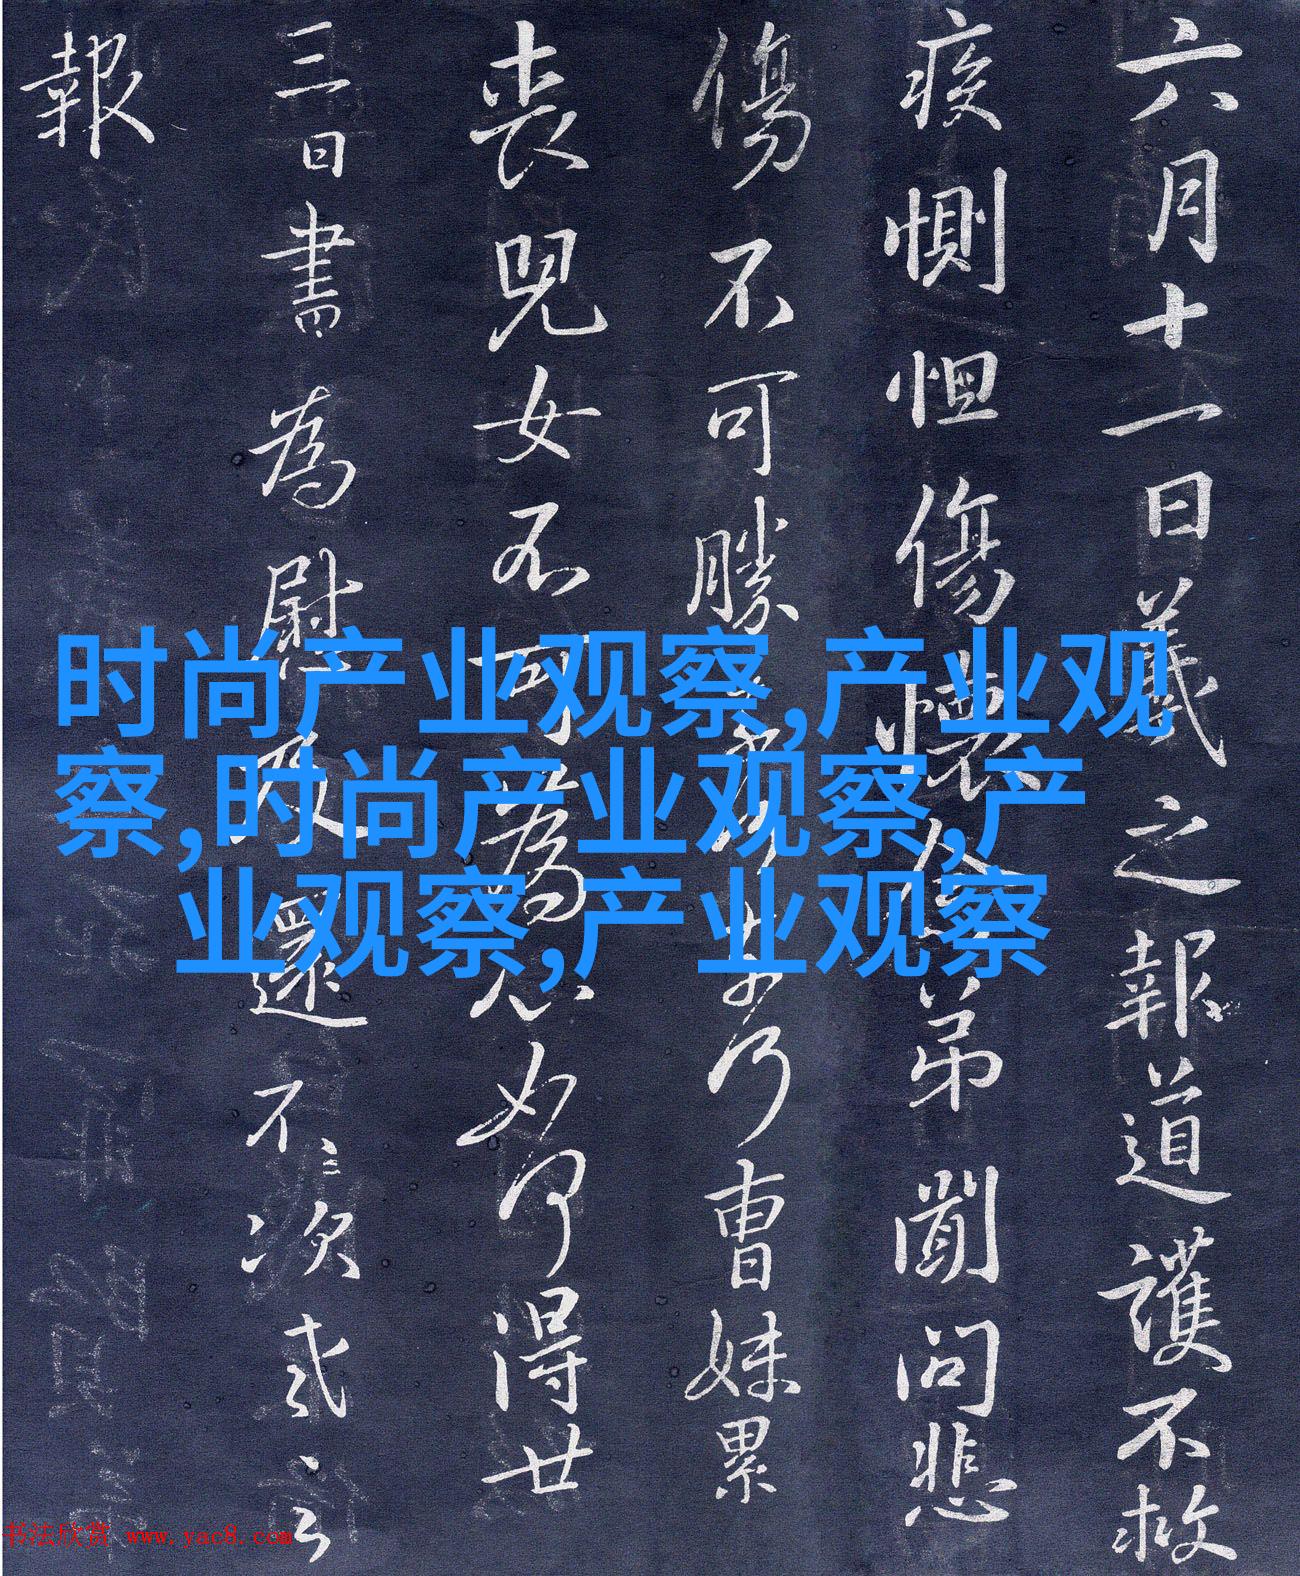 六月十一日羲之報道護不救
疾惻怛傷懐念弟聞問悲
傷不可勝奈何其乃曹妹累
喪兒女不可為心如何得廿
三日書為慰及還不次羲之
報
时尚产业观察,产业观
察,时尚产业观察,产
业观察,产业观察
书法欣赏 www.yac8.com